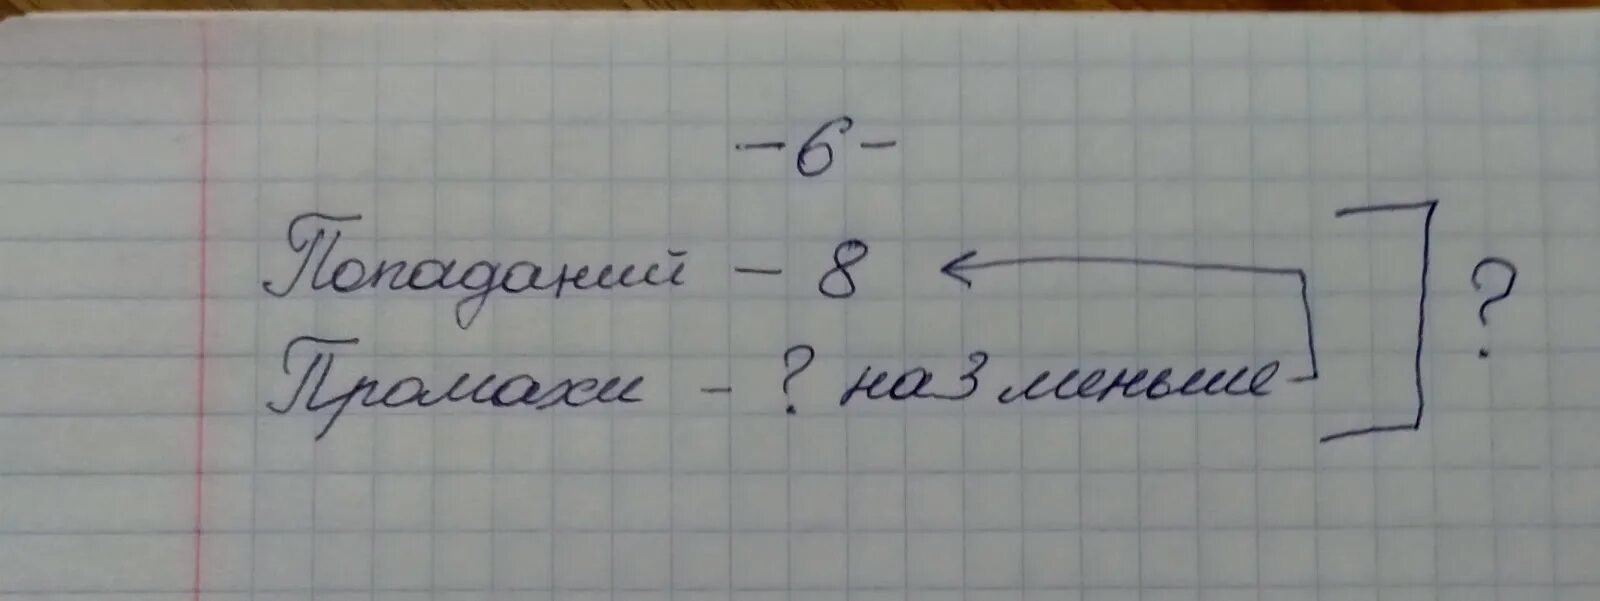 -6-
Попаданий - 8 ?
Промахи - ? на 3 меньше